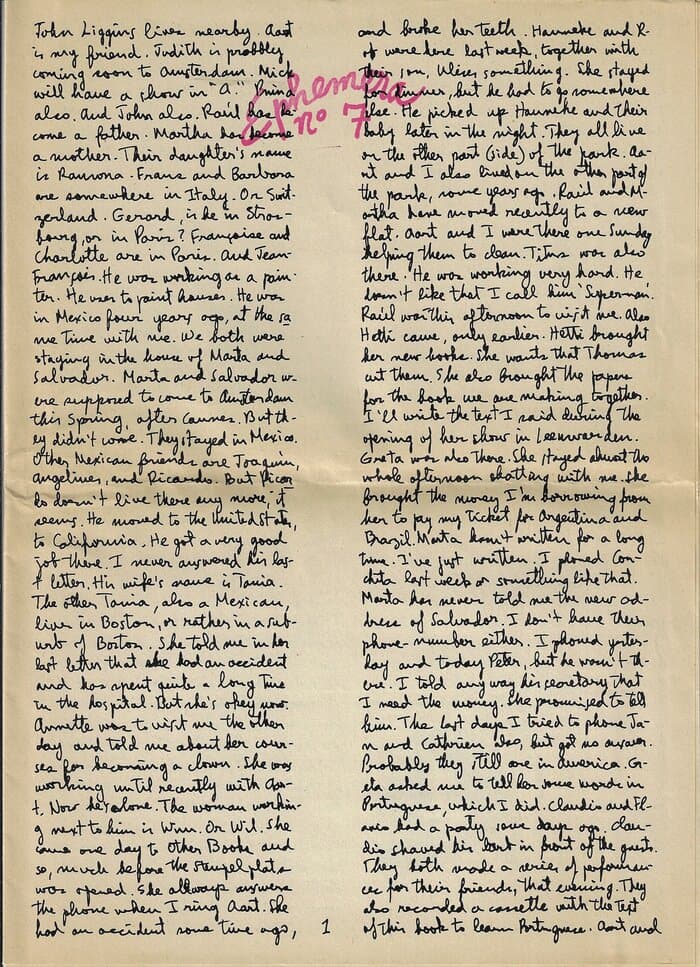 John Liggins lives nearby. Aart
is my friend. Judith is probbly
coming soon to Amsterdam. Mick
will have a show in "A." Pnina
also. And John also. Raúl has be-
come a father. Martha has become
a mother. Their daughter's name
is Ramona. Frans and Barbara
are somewhere in Italy. Or Swit-
zerland. Gerard, is he in Stras-
bourg, or in Paris? Françoise and
Charlotte are in Paris. And Jean-
François. He was working as a pain-
ter. He uses to paint houses. He was
in Mexico four years ago, at the sa
me time with me. We both were
staying in the house of Marta and
Salvador. Marta and Salvador w-
ere supposed to come to Amsterdam
this Spring, after Cannes. But th-
ey didn't come. They stayed in Mexico.
Other Mexican friends are Joaquín,
Angelines, and Ricardo. But Ricar
do doesn't live there any more, it
seems. He moved to the United States,
to California. He got a very good
job there. I never answered his las-
t letter. His wife's name is Tania.
The other Tania, also a Mexican,
lives in Boston, or rather in a sub-
urb of Boston. She told me in her
last letter that she had an accident
and has spent quite a long time
in the hospital. But she's okey now.
Annette was to visit me the other
day and told me about her cour-
ses for becoming a clown. She was
working until recently with Aar-
t. Now he's alone. The woman workin-
g next to him is Wim. Or Wil. She
came one day to Other Books and
so, much before the Stempelplats
was opened. She allways answers
the phone when I ring Aart. She
had an accident some time ago,
1
Ephemera
nº 7
and broke her teeth. Hanneke and R-
ob were here last week, together with
their son, Ulises something. She stayed
for dinner, but he had to go somewhere
else. He picked up Hanneke and their
baby later in the night. They all live
on the other part (side) of the park. Aa-
rt and I also lived on the other part of
the park, some years ago. Raúl and M-
artha have moved recently to a new
flat. Aart and I were there one Sunday
helping them to clean. Titus was also
there. He was working very hard. He
doesn't like that I call him 'Superman'.
Raúl was this afternoon to visit me. Also
Hetti came, only earlier. Hetti brought
her new books. She wants that Thomas
cut them. She also brought the papers
for the book we are making together.
I'll write the text I said during the
opening of her show in Leeuwarden.
Greta was also there. She stayed almost the
whole afternoon chatting with me. She
brought the money I'm borrowing from
her to pay my ticket for Argentina and
Brazil. Marta hasn't written for a long
time. I've just written. I phoned Con-
chita last week or something like that.
Marta has never told me the new ad-
dress of Salvador. I don't have their
phone-number either. I phoned yester-
day and today Peter, but he wasn't th-
ere. I told anyway his secretary that
I need the money. She promised to tell
him. The last days I tried to phone Ja-
n and Cathrien also, but got no answer.
Probably they still are in America. Gr-
eta asked me to tell her some words in
Portuguese, which I did. Claudio and Fl-
avio had a party some days ago. Clau-
dio shaved his beard in front of the guests.
They both made a series of performan-
ces for their friends, that evening. They
also recorded a cassette with the text
of this book to learn Portuguese. Aart and